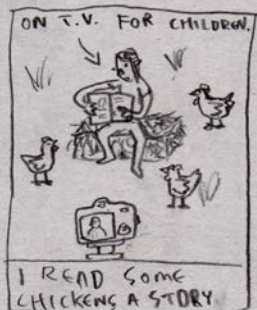 ON T.V. FOR CHILDREN.
I READ SOME
CHICKENS A STORY